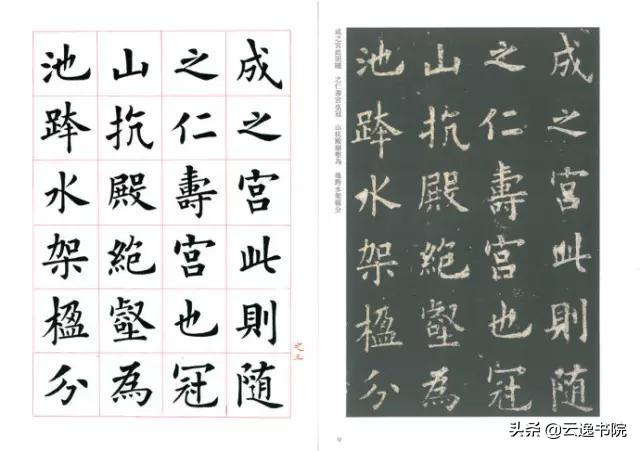 成之宮此則随
之仁壽宮也冠
山抗殿絕壑為
池跨水架楹分
成之宮此則隨 之仁壽宮也冠 山抗殿絕壑為 池跨水架楹分
成之宮此則随
之仁壽宮也冠
山抗殿絕壑為
池跨水架楹分
9
头条 @云逸书院